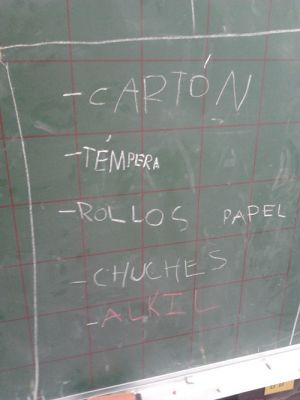 - CARTÓN
- TÉMPERA
- ROLLOS PAPEL
- CHUCHES
- ALKIL